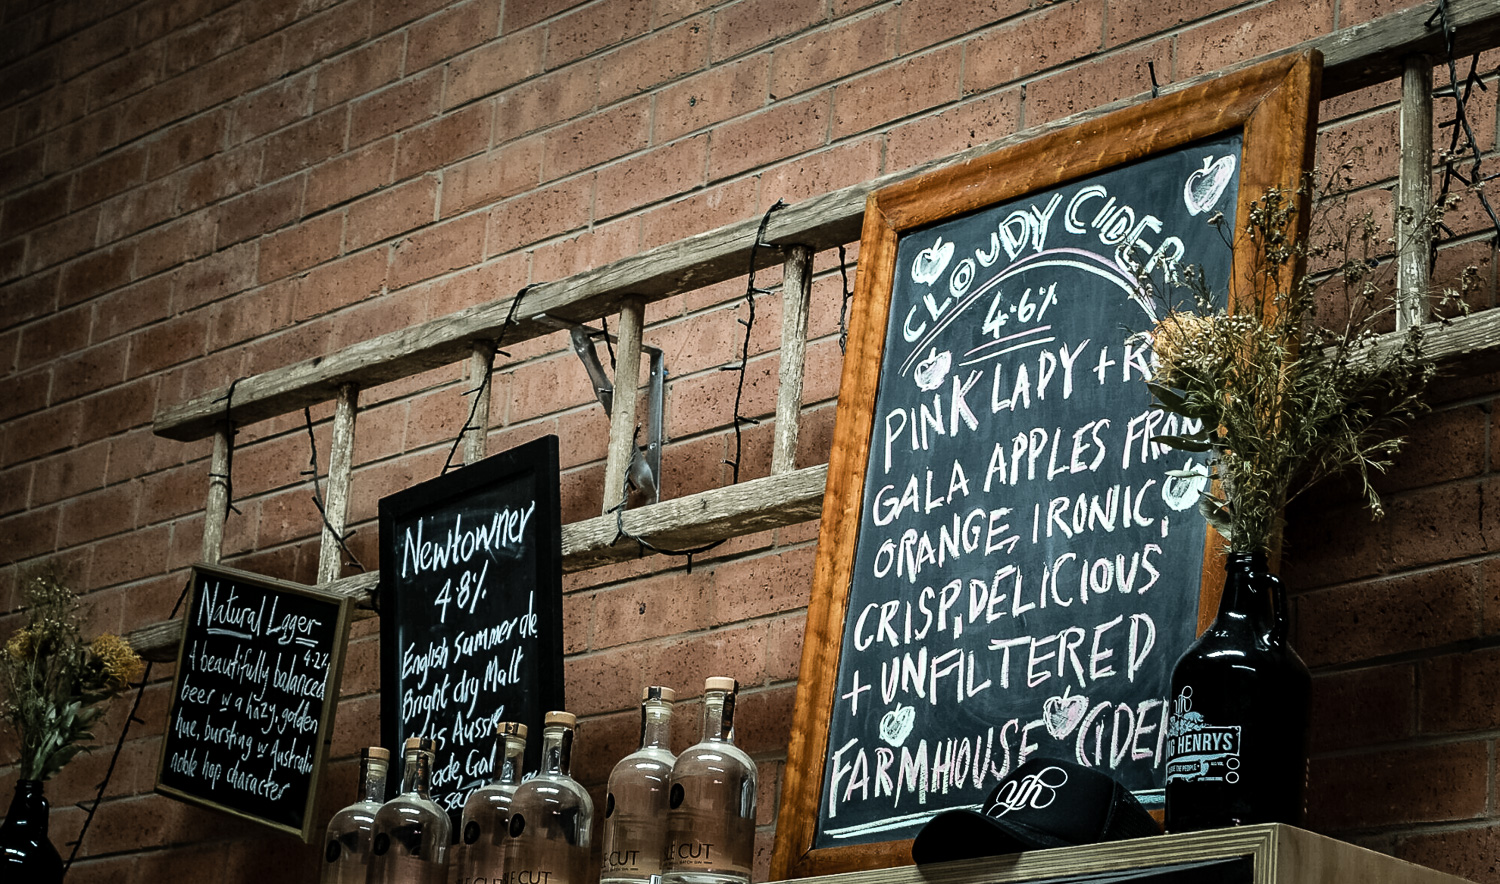 Natural Lager
4.2%
A beautifully balanced
beer w a hazy, golden
hue, bursting w Australian
noble hop character
Newtowner
4.8%
English Summer ale
Bright dry Malt
Aussie
CLOUDY CIDER
4.6%
PINK LADY +
GALA APPLES FROM
ORANGE, IRONIC,
CRISP, DELICIOUS
+ UNFILTERED
FARMHOUSE CIDER
yh
HENRYS
CUT
CUT